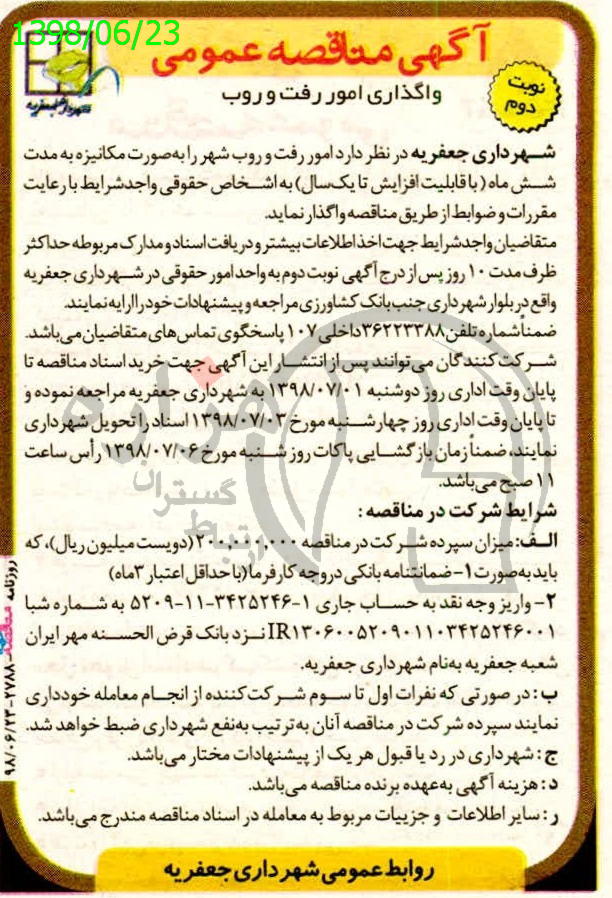 1398/06/23
آگهی مناقصه عمومی
واگذاری امور رفت و روب
نوبت دوم
شهرداری جعفریه
شهرداری جعفریه در نظر دارد امور رفت و روب شهر را به‌صورت مکانیزه به مدت
شش ماه (با قابلیت افزایش تا یک‌سال) به اشخاص حقوقی واجدشرایط با رعایت
مقررات و ضوابط از طریق مناقصه واگذار نماید.
متقاضیان واجدشرایط جهت اخذ اطلاعات بیشتر و دریافت اسناد و مدارک مربوطه حداکثر
ظرف مدت ۱۰ روز پس از درج آگهی نوبت دوم به واحد امور حقوقی در شهرداری جعفریه
واقع در بلوار شهرداری جنب بانک کشاورزی مراجعه و پیشنهادات خود را ارایه نمایند.
ضمناً شماره تلفن ۳۶۲۲۳۳۸۸ داخلی ۱۰۷ پاسخگوی تماس های متقاضیان می‌باشد.
شرکت کنندگان می‌توانند پس از انتشار این آگهی جهت خرید اسناد مناقصه تا
پایان وقت اداری روز دوشنبه ۱۳۹۸/۰۷/۰۱ به شهرداری جعفریه مراجعه نموده و
تا پایان وقت اداری روز چهارشنبه مورخ ۱۳۹۸/۰۷/۰۳ اسناد را تحویل شهرداری
نمایند، ضمناً زمان بازگشایی پاکات روز شنبه مورخ ۱۳۹۸/۰۷/۰۶ رأس ساعت
۱۱ صبح می‌باشد.
شرایط شرکت در مناقصه :
الف: میزان سپرده شرکت در مناقصه ۲۰۰,۰۰۰,۰۰۰ (دویست میلیون ریال)، که
باید به‌صورت ۱- ضمانتنامه بانکی در وجه کارفرما (با حداقل اعتبار ۳ماه)
۲- واریز وجه نقد به حساب جاری ۱-۳۴۲۵۲۴۶-۱۱-۵۲۰۹ به شماره شبا
IR۱۳۰۶۰۰۵۲۰۹۰۱۱۰۳۴۲۵۲۴۶۰۰۱ نزد بانک قرض الحسنه مهر ایران
شعبه جعفریه به‌نام شهرداری جعفریه.
ب: در صورتی که نفرات اول تا سوم شرکت‌کننده از انجام معامله خودداری
نمایند سپرده شرکت در مناقصه آنان به‌ترتیب به‌نفع شهرداری ضبط خواهد شد.
ج: شهرداری در رد یا قبول هر یک از پیشنهادات مختار می‌باشد.
د: هزینه آگهی به‌عهده برنده مناقصه می‌باشد.
ر: سایر اطلاعات و جزییات مربوط به معامله در اسناد مناقصه مندرج می‌باشد.
روابط عمومی شهرداری جعفریه
روزنامه مناقصه ۲۷۸۸-۹۸/۰۶/۲۳
هزاره
گستران
ارتباط